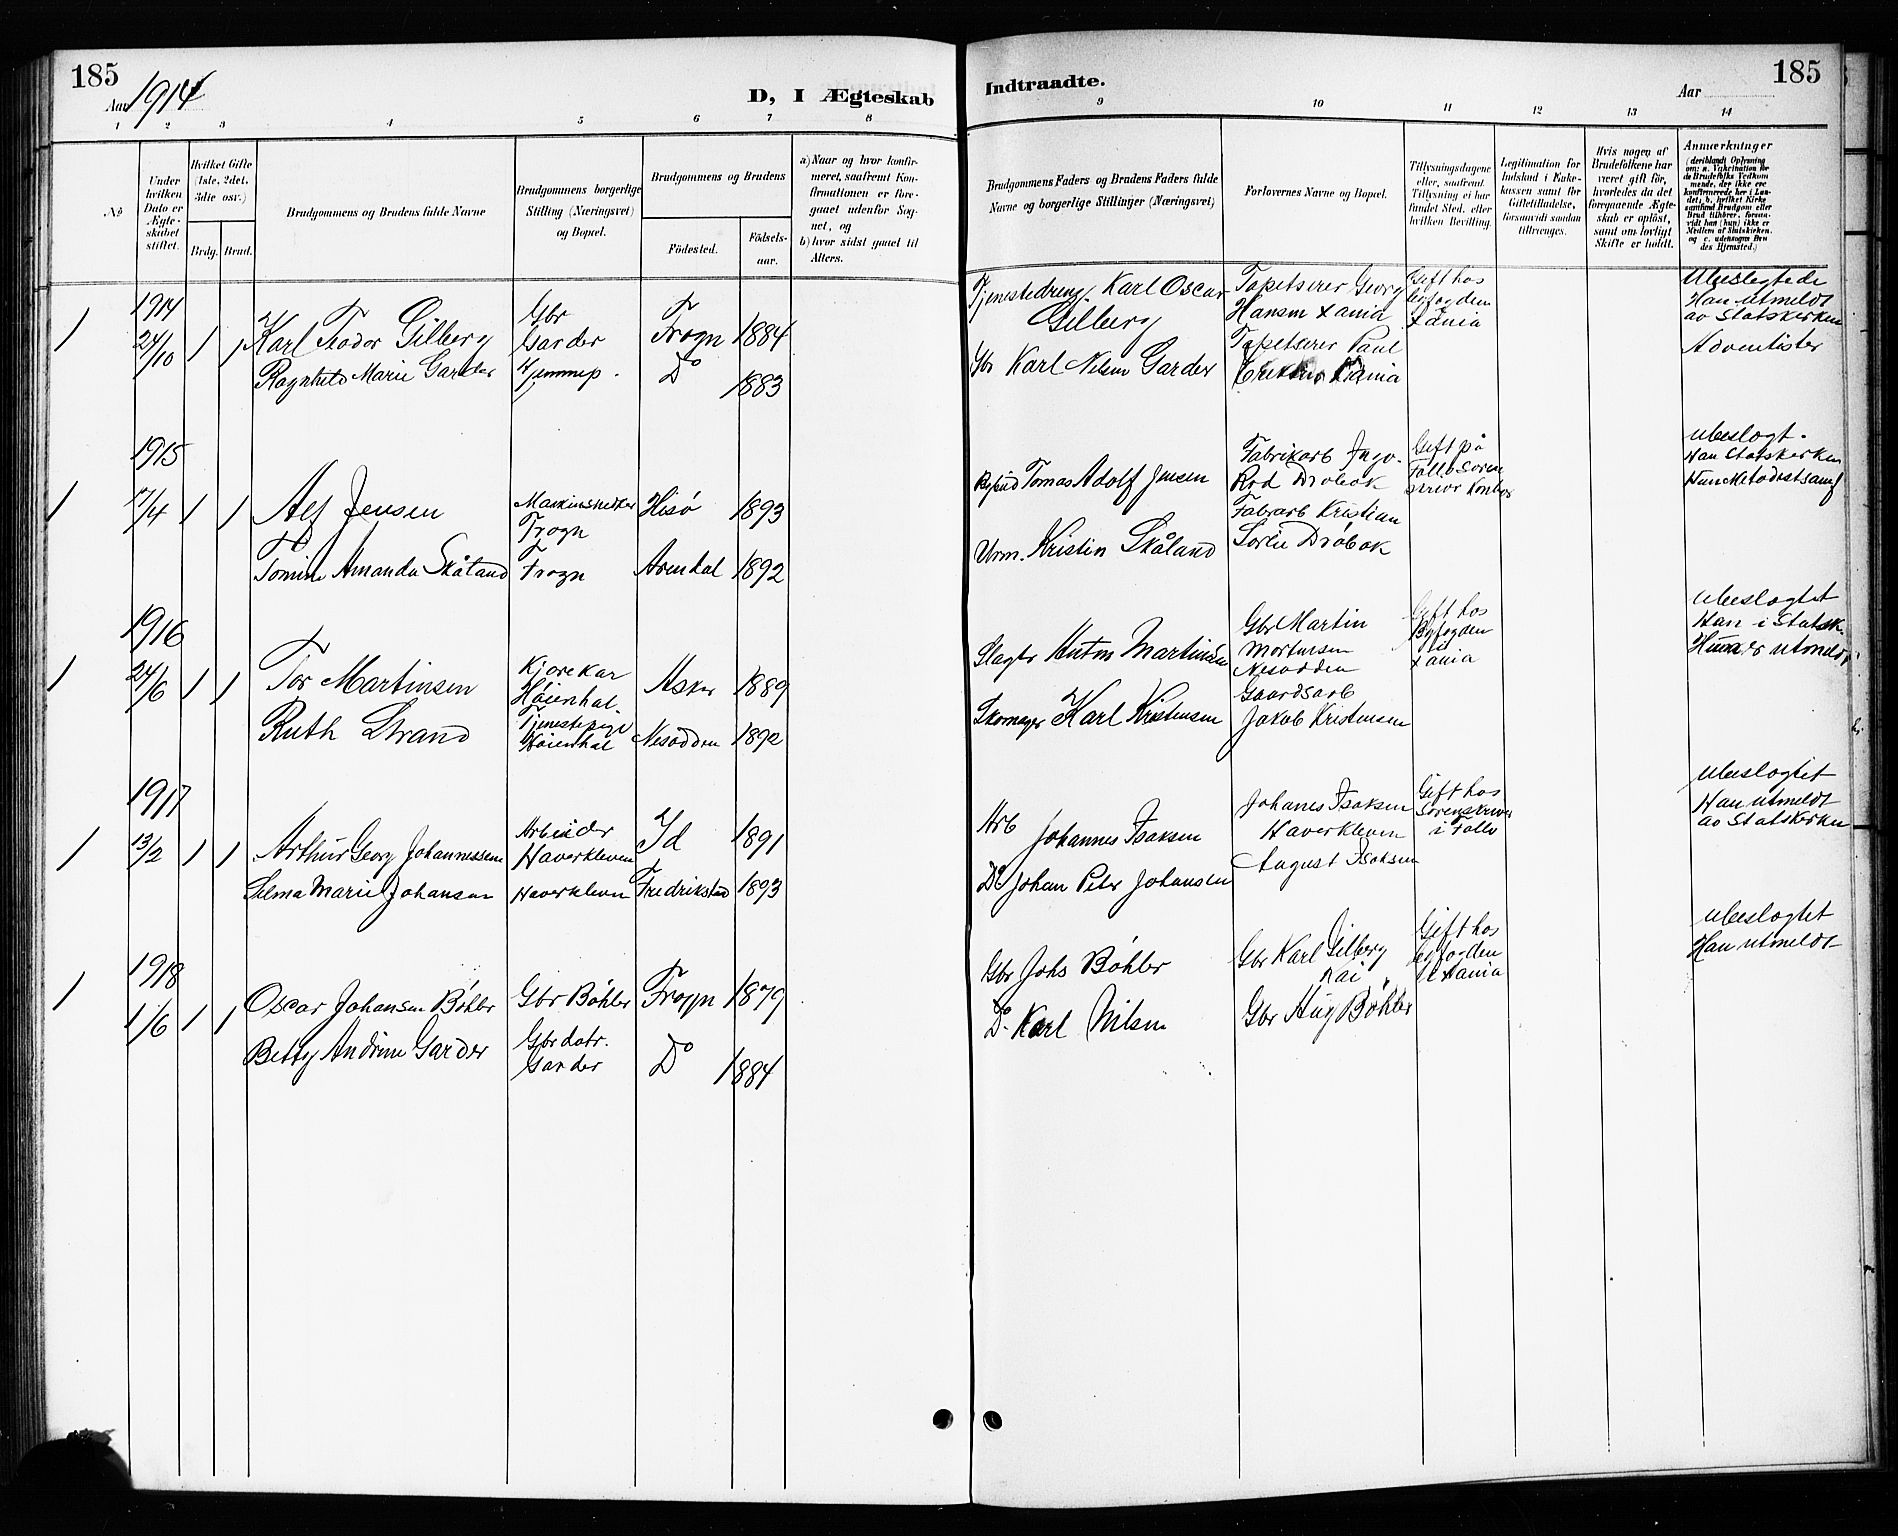 185
Aar 1914
D, I Ægteskab
1 2 3 4 5 6 7 8
No
Under hvilken Dato er Ægteskabet stiftet.
Hvilket Gifte (1ste, 2det, 3die osv.)
Brdg. Brud.
Brudgommens og Brudens fulde Navne
Brudgommens borgerlige Stilling (Næringsvei) og Bopæl.
Brudgommens og Brudens
Födested. Födselsaar.
a) Naar og hvor konfirmeret, saafremt Konfirmationen er foregaaet udenfor Sognet, og
b) hvor sidst gaaet til Alters.
1914
1 24/10 1 1 Karl Teodor Gilberg Gbr Garder Frogn 1884
Ragnhild Marie Garder Hjemmep. Do 1883
1915
1 17/4 1 1 Alf Jensen Maskinsmed Frogn Hisø 1893
Tomine Amanda Skåland Frogn Arendal 1892
1916
1 24/6 1 1 Tor Martinsen Kjørekar Høienhal. Asker 1889
Ruth Strand Tjenestepige Høienhal Nesodden 1892
1917
1 13/2 1 1 Arthur Georg Johannessen Arbeider Haverkleven Id 1891
Selma Marie Johansen Haverkleven Fredrikstad 1893
1918
1 1/6 1 1 Oscar Johansen Bøhler Gbr Bøhler Frogn 1879
Betty Andrine Garder Gbrdatr. Garder Do 1884
Indtraadte.
Aar
185
9 10 11 12 13 14
Brudgommens Faders og Brudens Faders fulde Navne og borgerlige Stillinger (Næringsvei)
Forlovernes Navne og Bopæl.
Tillysningsdagene eller, saafremt Tillysning ei har fundet Sted, efter hvilken Bevilling.
Legitimation for Indskud i Enkekassen samt for Giftetilladelse, forsaavidt saadan tiltrænges.
Hvis nogen af Brudefolkene har været gift för, hvorledes da det foregaaende Ægteskab er oplöst, samt om lovligt Skifte er holdt.
Anmærkninger
(deriblandt Oplysning om: a. Vaksination for de Brudefolks Vedkommende, der ikke ere konfirmerede her i Landet; b. hvilket Kirkesamfund Brudgom eller Brud tilhörer, forsaavidt han (hun) ikke er Medlem af Statskirken, og c. udensogns Bendes Hjemsted.)
Tjenestedreng. Karl Oscar Gilberg
Tapetserer Georg Hansen Xania
Gift hos byfogden Xania
Ubeslegtede
Han utmeldt
av Statskirken
Adventister
Gbr Karl Nilsen Garder
Tapetserer Paul
Xania
Tomas Adolf Jensen
Fabrikarb Ingv. Rød Drøbak
Gift på Follo Soren
ubeslegt.
Han Statskirken
Hun Metodistsamf
Urm. Kristin Skåland
Fabrarb Kristian
Drøbak
Slagter Anton Martinsen
Gbr Martin Mortensen Nesodden
Gift hos Byfogden Xania
ubeslegtet
Han i Statsk.
Hun er utmeldt
Skomager Karl Kristensen
Gaardsarb Jakob Kristensen
Arb Johannes Isaksen
Johanes Isaksen Haverkleven
Gift hos Sorenskriver i Follo
ubeslegtet
Han utmeldt
av Statskirken
Do Johan Peter Johansen
August Isaksen
Gbr Johs Bøhler
Gbr Karl Gilberg
Gift hos byfogden Xania
ubeslegtet
Han utmeldt
Do. Karl Nilsen
Gbr Aug Bøhler